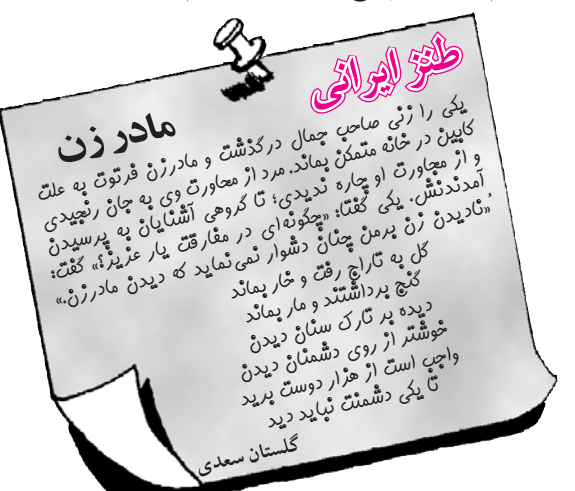 طنز ایرانی
مادر زن
یکی را زنی صاحب جمال درگذشت و مادرزن فرتوت به علت
کابین در خانه متمکن بماند. مرد از محاورت وی به جان رنجیدی
و از مجاورت او چاره ندیدی؛ تا گروهی آشنایان به پرسیدن
آمدندنش. یکی گفتا: «چگونه‌ای در مفارقت یار عزیز؟» گفت:
«نادیدن زن برمن چنان دشوار نمی‌نماید که دیدن مادرزن.»
گل به تاراج رفت و خار بماند
گنج برداشتند و مار بماند
دیده بر تارک سنان دیدن
خوشتر از روی دشمنان دیدن
واجب است از هزار دوست برید
تا یکی دشمنت نباید دید
گلستان سعدی